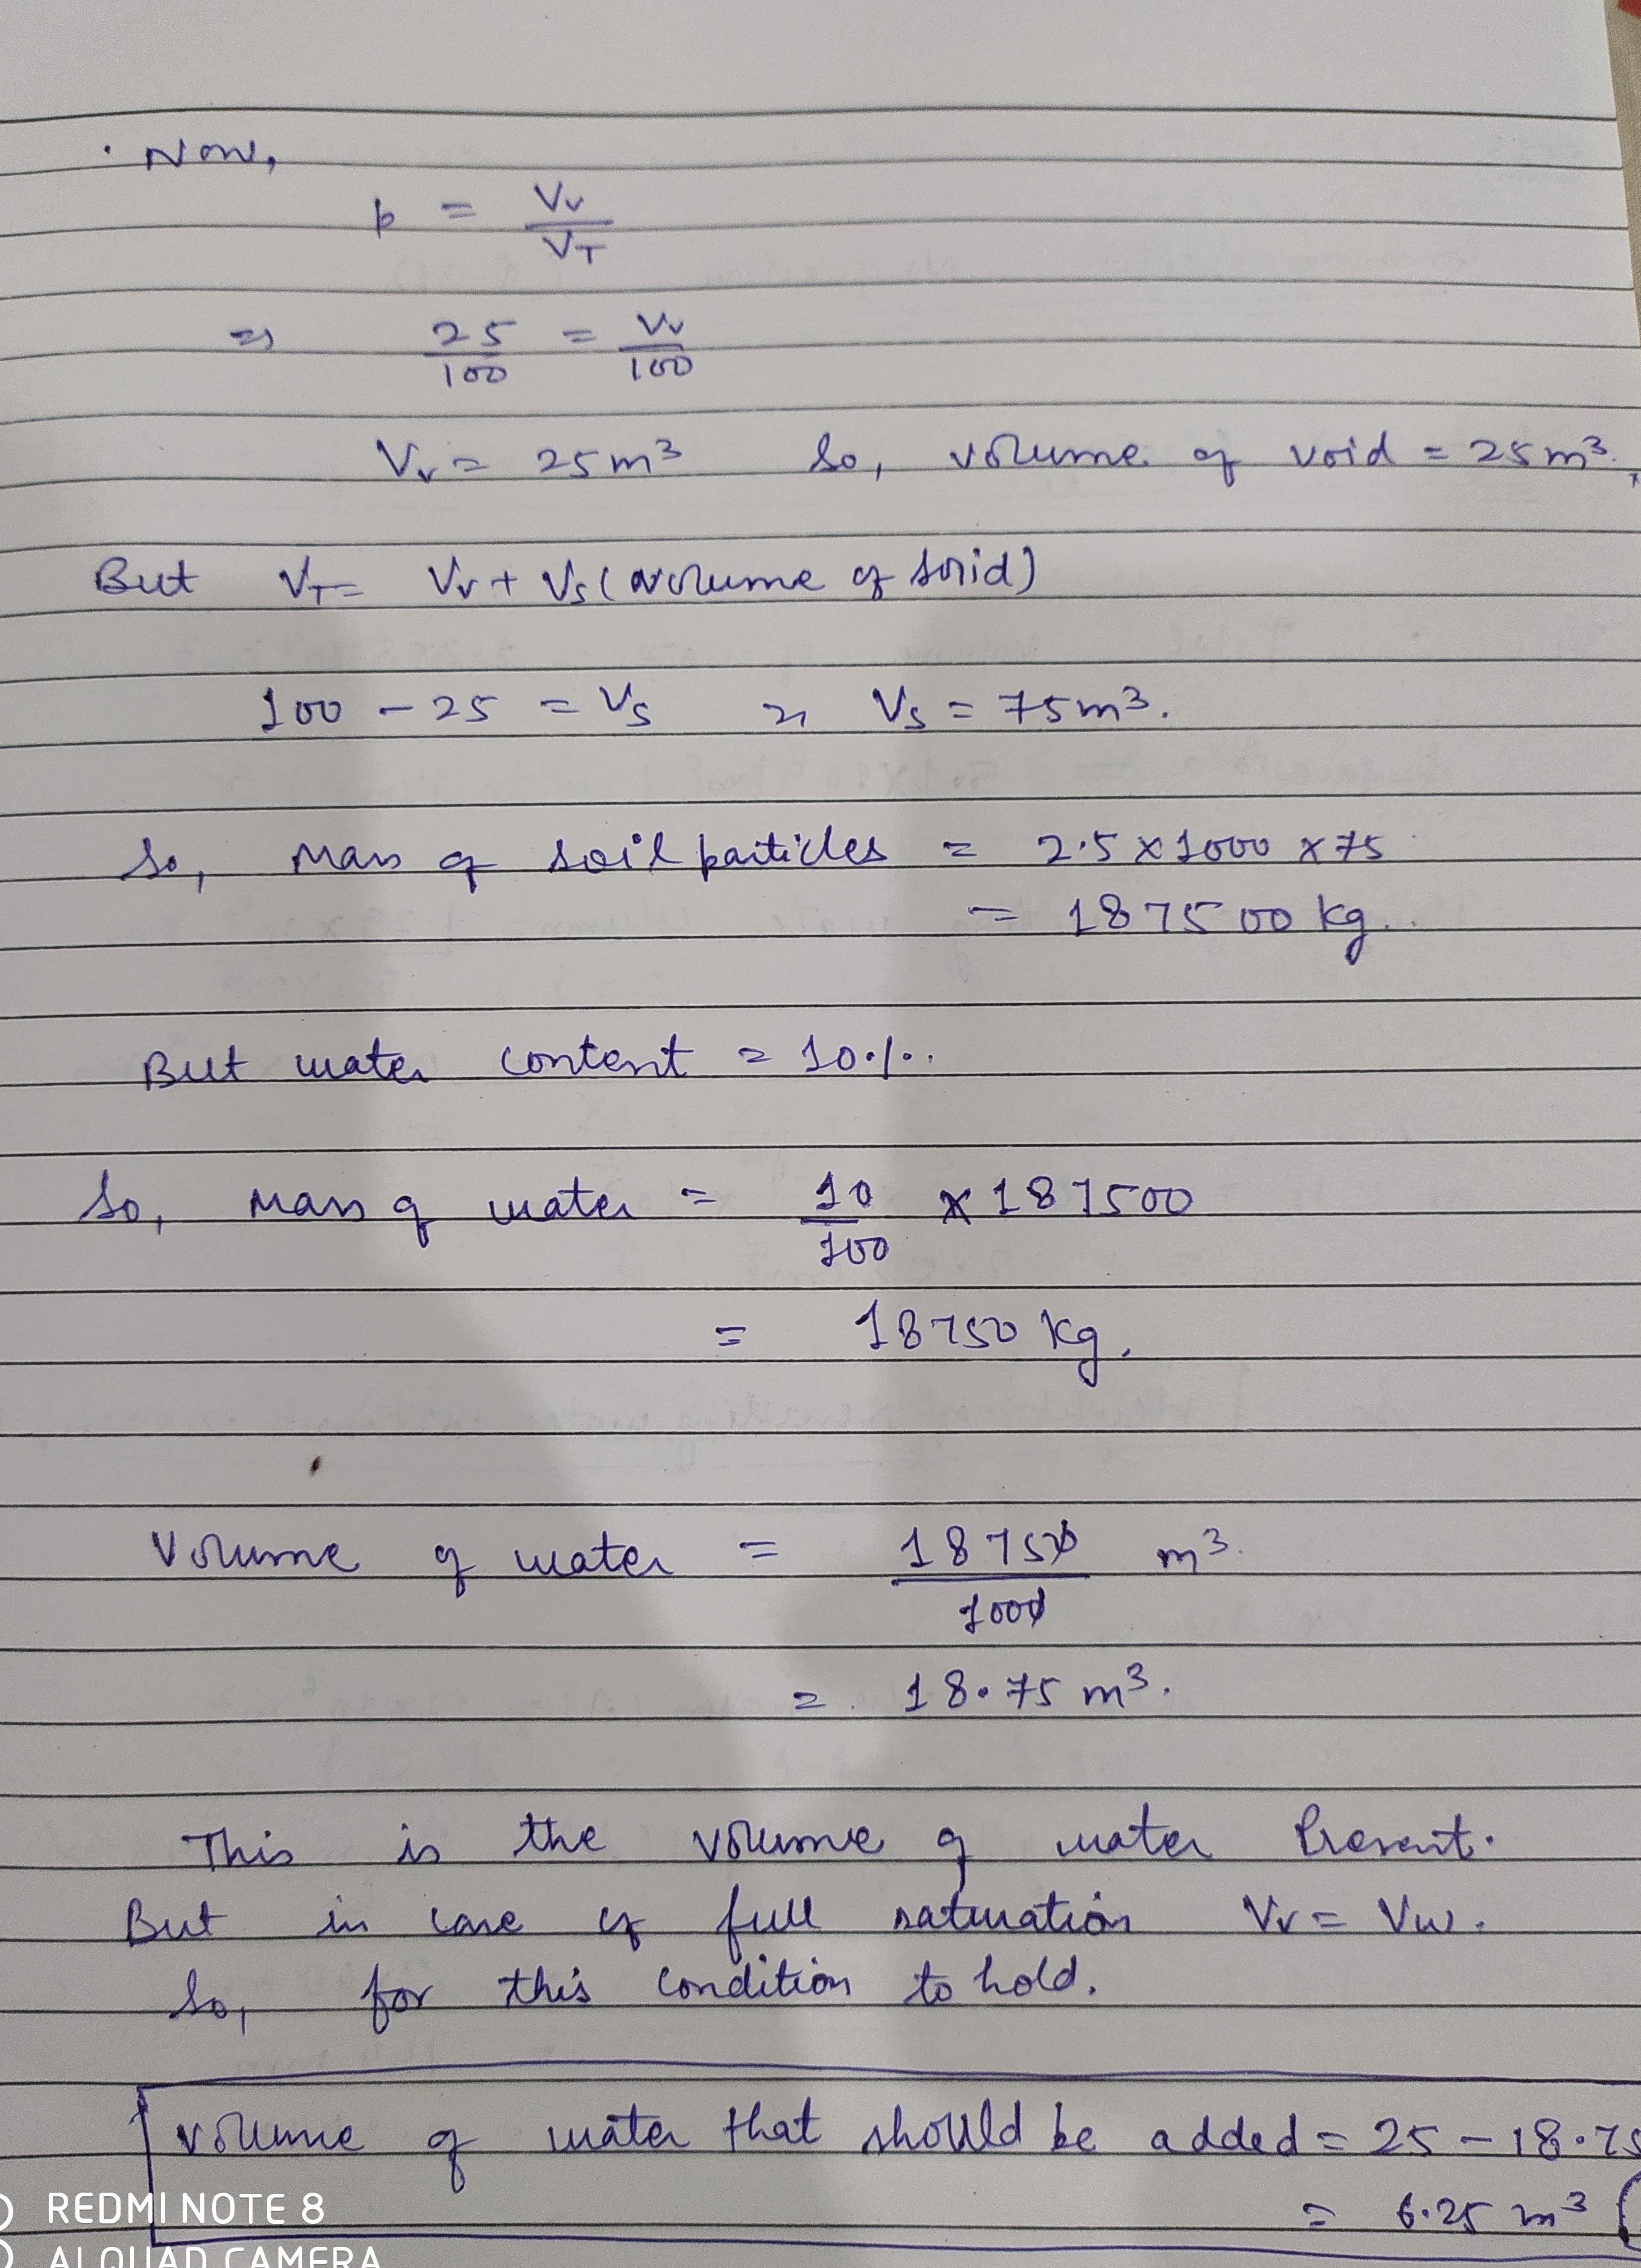 . Now,
p = Vv / VT
=> 25/100 = Vv/100
Vv = 25m³ So, volume of void = 25m³.
But VT = Vv + Vs (volume of solid)
100 - 25 = Vs => Vs = 75m³.
So, Mass of soil particles = 2.5 x 1000 x 75
= 187500 kg.
But water content = 10%.
So, Mass of water = 10/100 x 187500
= 18750 kg.
Volume of water = 18750/1000 m³.
= 18.75 m³.
This is the volume of water Present.
But in case of full saturation Vv = Vw.
So, for this condition to hold.
volume of water that should be added = 25 - 18.75
= 6.25 m³ (
REDMI NOTE 8
AI QUAD CAMERA